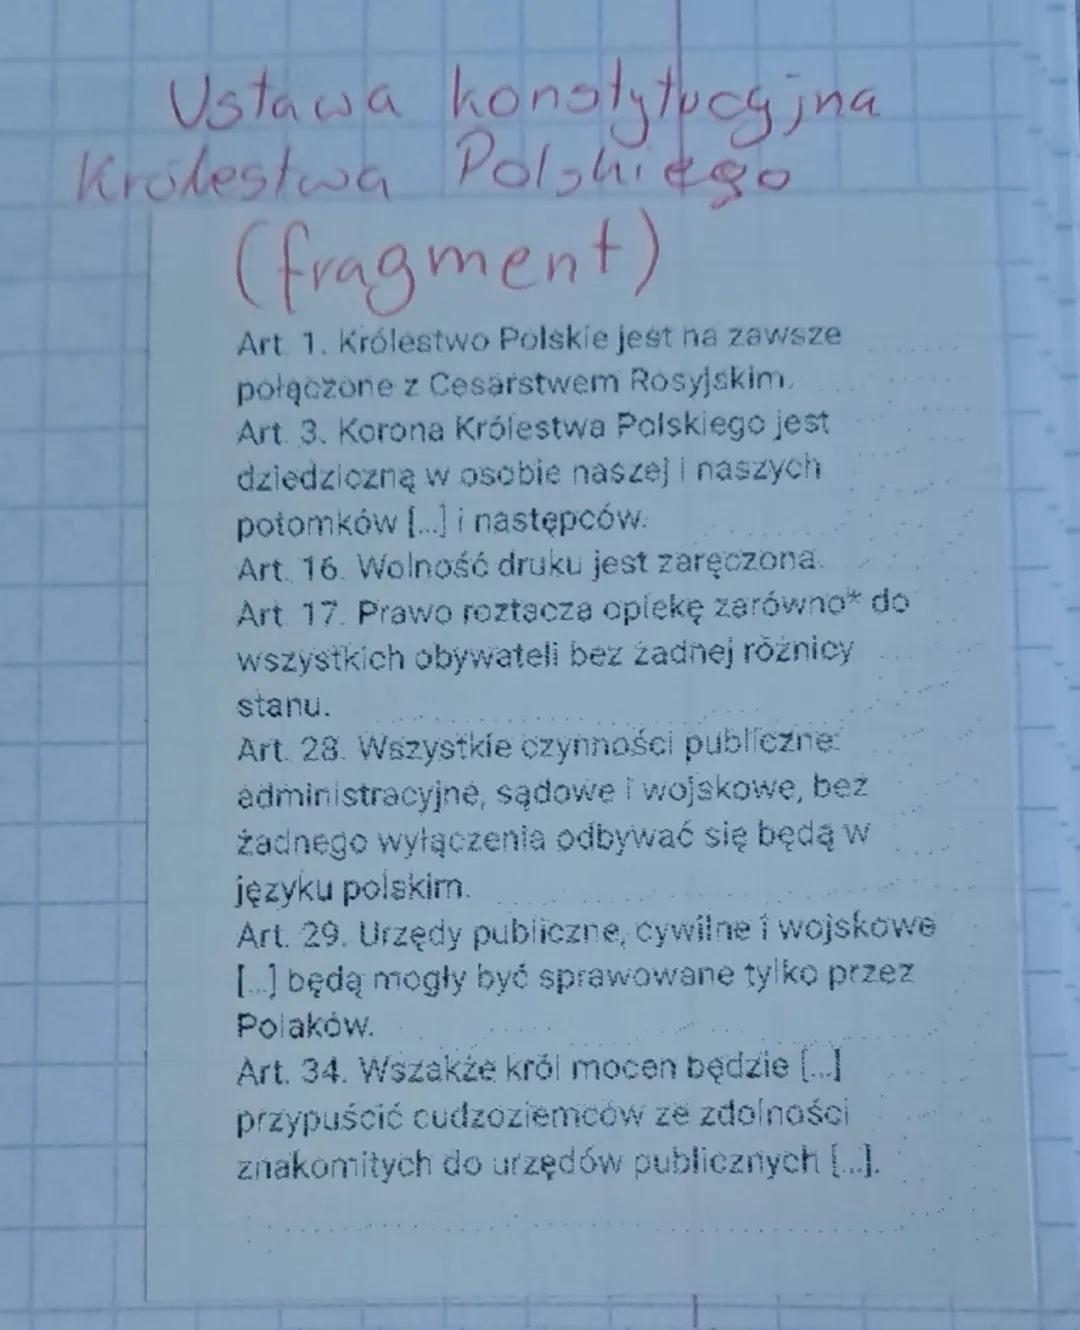 Ustawa konstytucyjna
Królestwa Polskiego
(fragment)
Art. 1. Królestwo Polskie jest na zawsze
połączone z Cesarstwem Rosyjskim.
Art. 3. Korona Królestwa Polskiego jest
dziedziczną w osobie naszej i naszych
potomków [...] i następców.
Art. 16. Wolność druku jest zaręczona.
Art. 17. Prawo roztacza opiekę zarówno* do
wszystkich obywateli bez żadnej różnicy
stanu.
Art. 28. Wszystkie czynności publiczne:
administracyjne, sądowe i wojskowe, bez
żadnego wyłączenia odbywać się będą w
języku polskim.
Art. 29. Urzędy publiczne, cywilne i wojskowe
[...] będą mogły być sprawowane tylko przez
Polaków.
Art. 34. Wszakże król mocen będzie [...]
przypuścić cudzoziemców ze zdolności
znakomitych do urzędów publicznych [...].